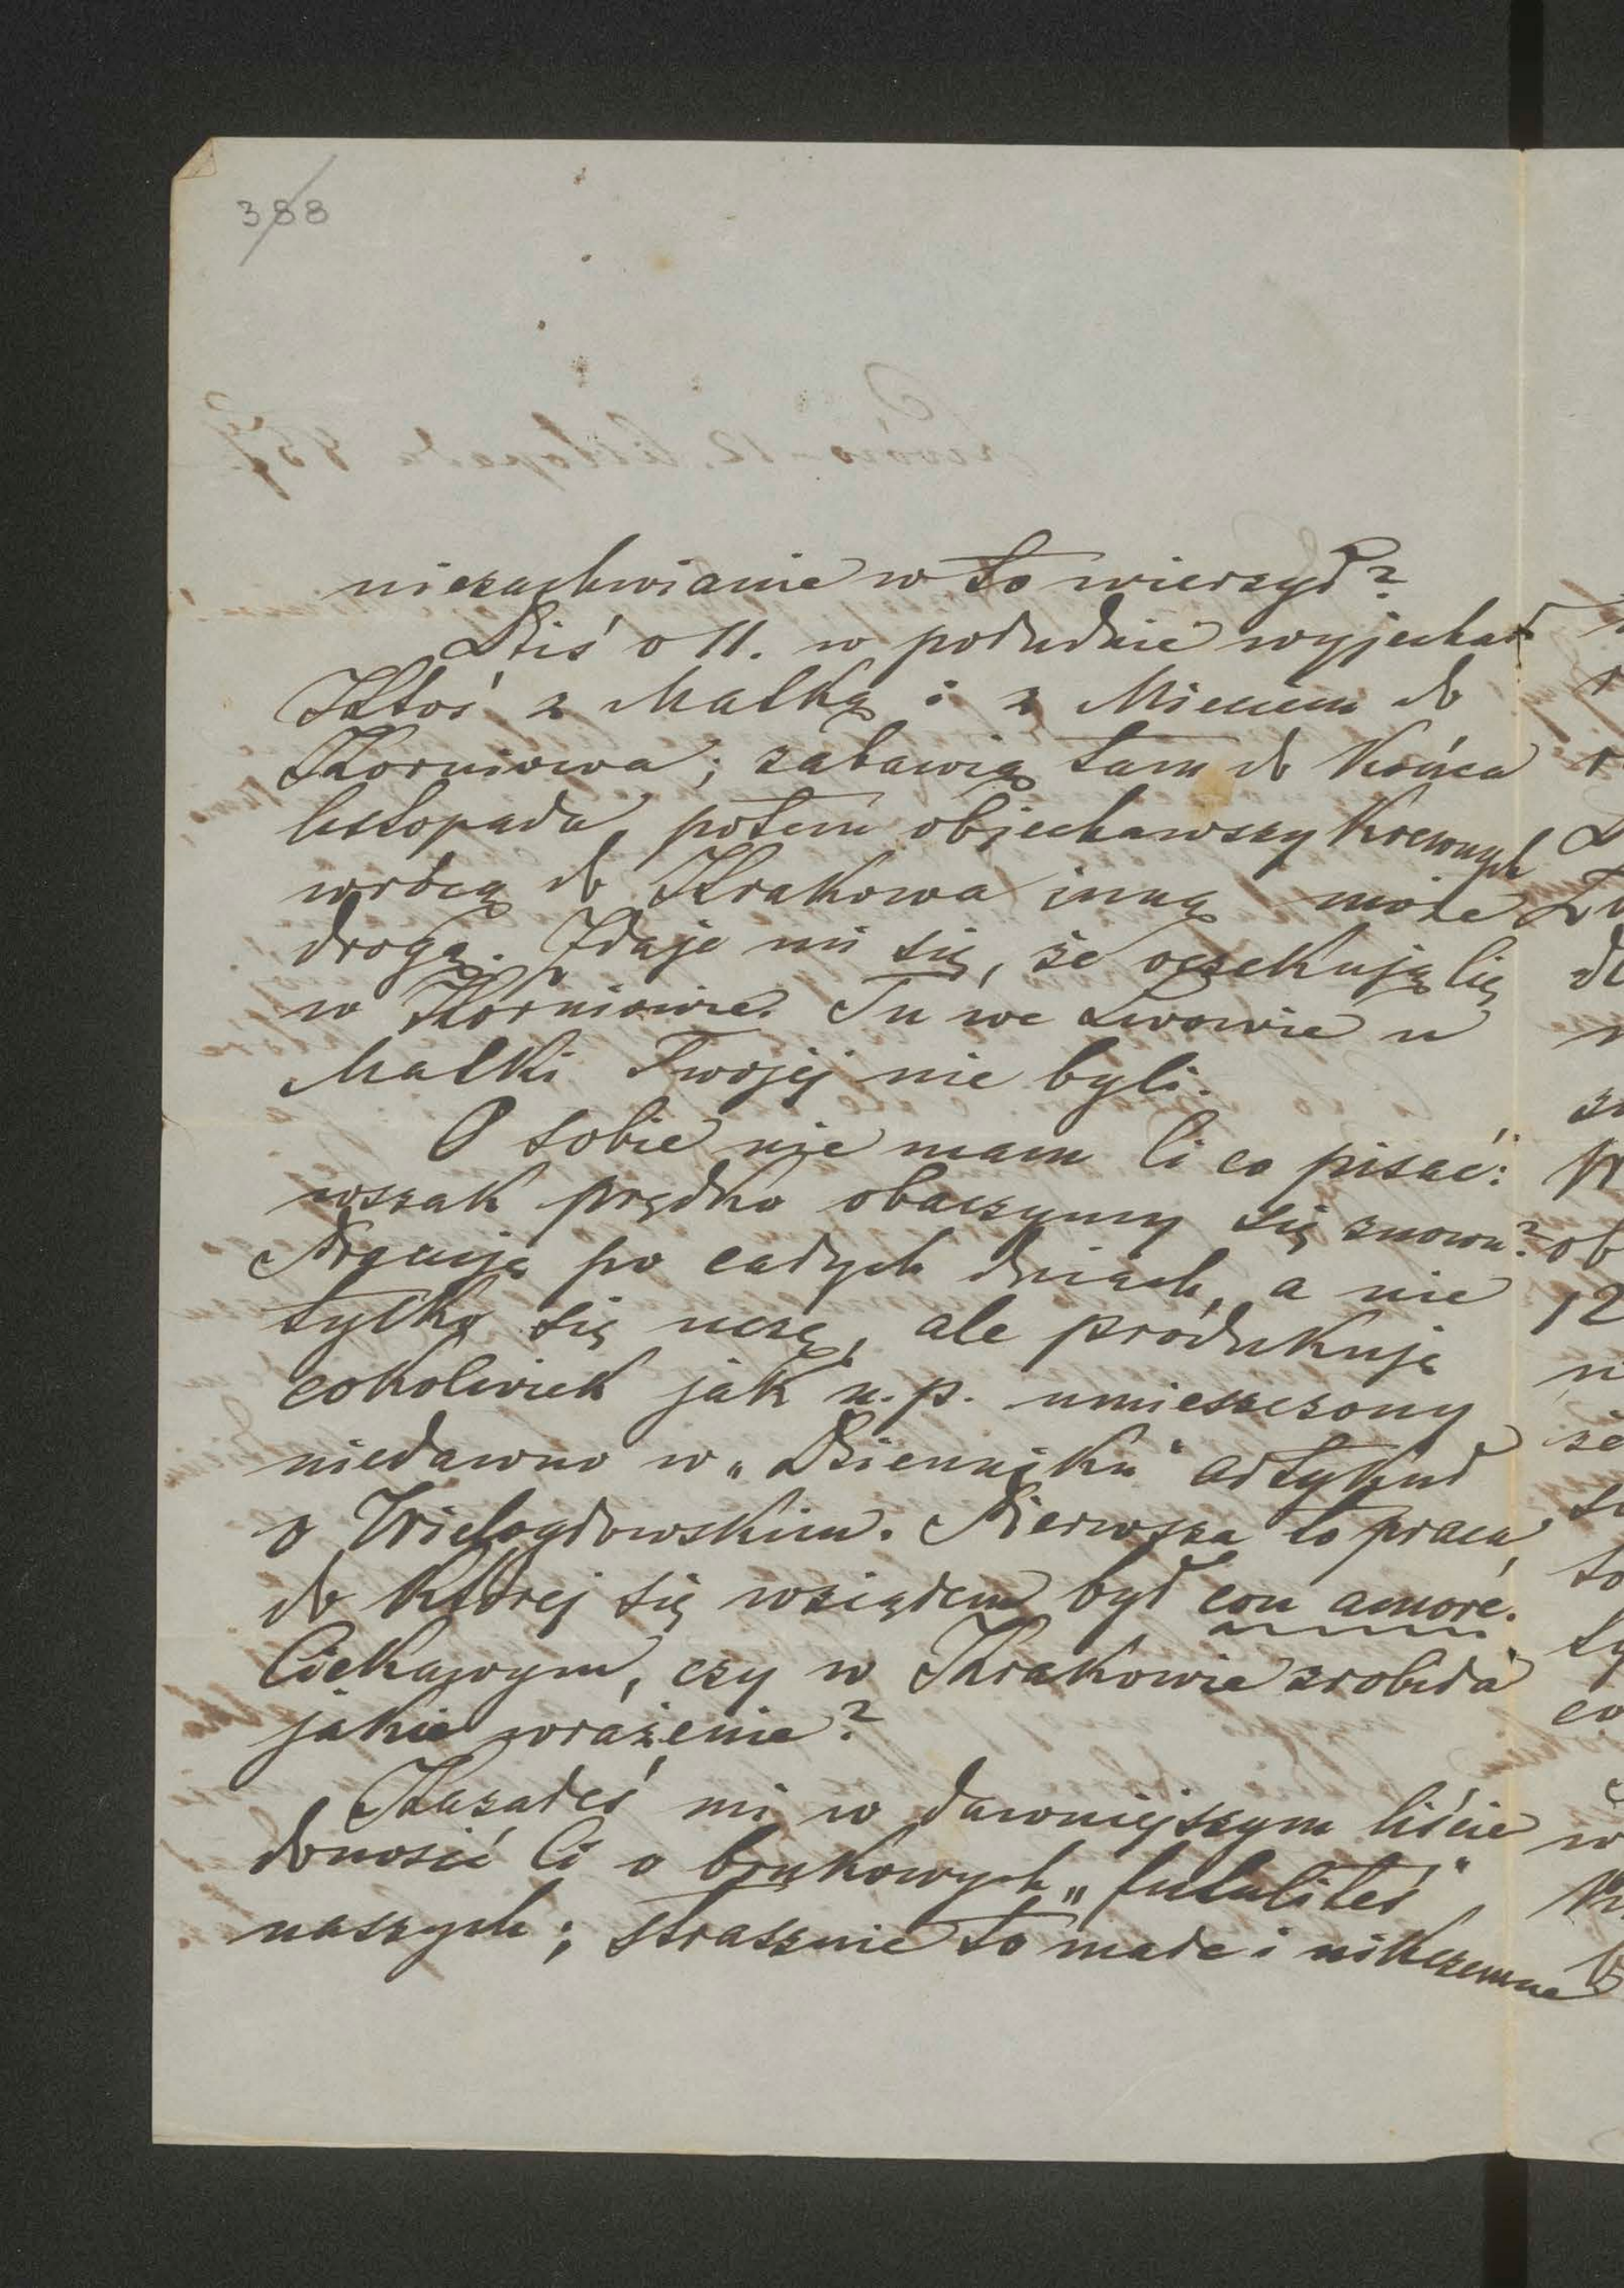 388
niezachwianie w to wierzył?
Dziś o 11. w południe wyjechał
Ktoś z Matką i z Mieciem do
Korniowa; zabawią tam do końca
listopada, potem objechawszy krewnych
wrócą do Krakowa inną może
drogą. Zdaje mi się, że oczekują Cię
w Korniowie. Tu we Lwowie u
Matki Twojej nie byli.
O sobie nie mam Ci co pisać:
wszak prędko obaczymy się znowu?
Pracuję po całych dniach, a nie
tylko się uczę, ale produkuję
cokolwiek jak n.p. umieszczony
niedawno w „Dzienniku" artykuł
o Wielogłowskim. Pierwsza to praca,
do której się wziąłem był con amore.
Ciekawym, czy w Krakowie zrobiła
jakie wrażenie?
Kazałeś mi w dawniejszym liście
donosić Ci o brukowych „futilités"
naszych; strasznie to małe i nikczemne